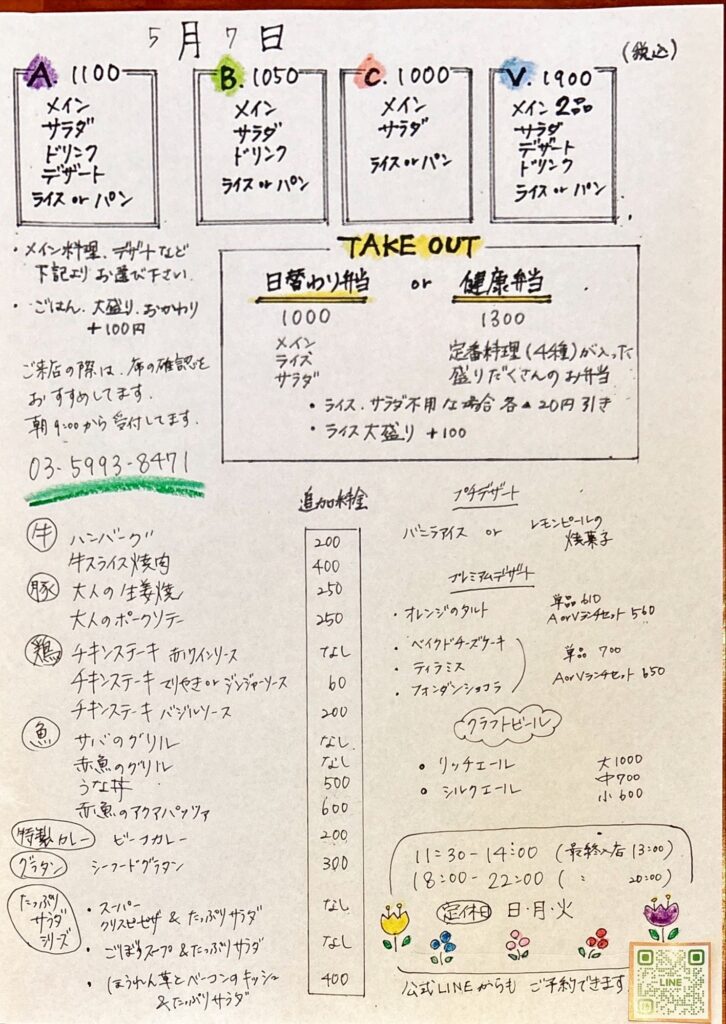 5月7日
(税込)
A. 1100
メイン
サラダ
ドリンク
デザート
ライス or パン
B. 1050
メイン
サラダ
ドリンク
ライス or パン
C. 1000
メイン
サラダ
ライス or パン
V. 1900
メイン 2品
サラダ
デザート
ドリンク
ライス or パン
・メイン料理、デザートなど
下記より お選び下さい
・ごはん、大盛り、おかわり
+100円
ご来店の際は、席の確認を
おすすめしてます。
朝9:00から受付してます。
03-5993-8471
TAKE OUT
日替わり弁当 or 健康弁当
1000
メイン
ライス
サラダ
1300
定番料理(4種)が入った
盛りだくさんのお弁当
・ライス、サラダ不用な場合 各▲20円引き
・ライス大盛り +100
追加料金
牛 ハンバーグ 200
牛スライス焼肉 400
豚 大人の生姜焼 250
大人のポークソテー 250
鶏 チキンステーキ 赤ワインソース なし
チキンステーキ てりやき or ジンジャーソース 60
チキンステーキ バジルソース 200
魚 サバのグリル なし
赤魚のグリル なし
うな丼 500
赤魚のアクアパッツァ 600
特製カレー ビーフカレー 200
グラタン シーフードグラタン 300
たっぷりサラダシリーズ
・スーパークリスピーピザ & たっぷりサラダ なし
・ごぼうスープ & たっぷりサラダ なし
・ほうれん草とベーコンのキッシュ
& たっぷりサラダ 400
プチデザート
バニラアイス or レモンピールの
焼菓子
プレミアムデザート
・オレンジのタルト 単品 610
A or Vランチセット 560
・ベイクドチーズケーキ
・ティラミス
・フォンダンショコラ
単品 700
A or Vランチセット 650
クラフトビール
・リッチエール
・シルクエール
大1000
中700
小600
11:30-14:00 (最終入店 13:00)
18:00-22:00 ( : 20:00)
定休日 日・月・火
公式LINEからも ご予約できます
LINE